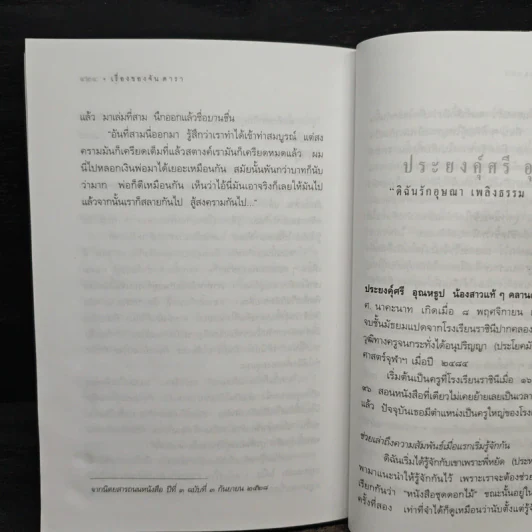 เรื่องของจัน ดารา
แล้ว มาเล่มที่สาม นึกออกแล้วชื่อยานชื่น
"อันที่สามนี่ออกมา รู้สึกว่าเราทำได้เข้าท่าสมบูรณ์ แต่สง
ครามมันก็เครียดเต็มที่แล้วสตางค์เรามันก็เครียดหมดแล้ว ผม
นี่ไปหลอกเงินพ่อมาได้เยอะเหมือนกัน สมัยนั้นพันกว่าบาทก็นับ
ว่ามาก พ่อก็ดีเหมือนกัน เห็นว่าไอ้นี่มันเอาจริงก็เลยให้มันไป
แล้วจากนั้นเราก็สลายกันไป สู้สงครามกันไป..."
จากนิตยสารถนนหนังสือ ปีที่ ๓ ฉบับที่ ๓ กันยายน ๒๕๒๘
ประยงค์ศรี
"ดิฉันรักอุษณา เพลิงธรรม
ประยงค์ศรี อุณหธูป น้องสาวแท้ ๆ คลานต
ศ. นาคะนาท เกิดเมื่อ ๘ พฤศจิกายน
จบชั้นมัธยมแปดจากโรงเรียนราชินีปากคลอง
วุฒิทางครูจนกระทั่งได้อนุปริญญา (ประโยคมั
ศาสตร์จุฬาฯ เมื่อปี ๒๔๘๔
เริ่มต้นเป็นครูที่โรงเรียนราชินีเมื่อ ๑๖
๒๖ สอนหนังสือที่เดียวไม่เคยย้ายเลยเป็นเวลา
แล้ว ปัจจุบันเธอมีตำแหน่งเป็นครูใหญ่ของโรงเ
ช่วยเล่าถึงความสัมพันธ์เมื่อแรกเริ่มรู้จักกัน
ดิฉันเริ่มได้รู้จักกับเขาเพราะพี่หยัด (ประห
พามาแนะนำให้รู้จักกันไว้ เพราะเราจะต้องช่วย
เรียกกันว่า "หนังสือชุดดอกไม้" ขณะนั้นอยู่ใน
ครั้งที่สอง เท่าที่จำได้ก็ดูเหมือนว่านับตั้งแต่รู้จ